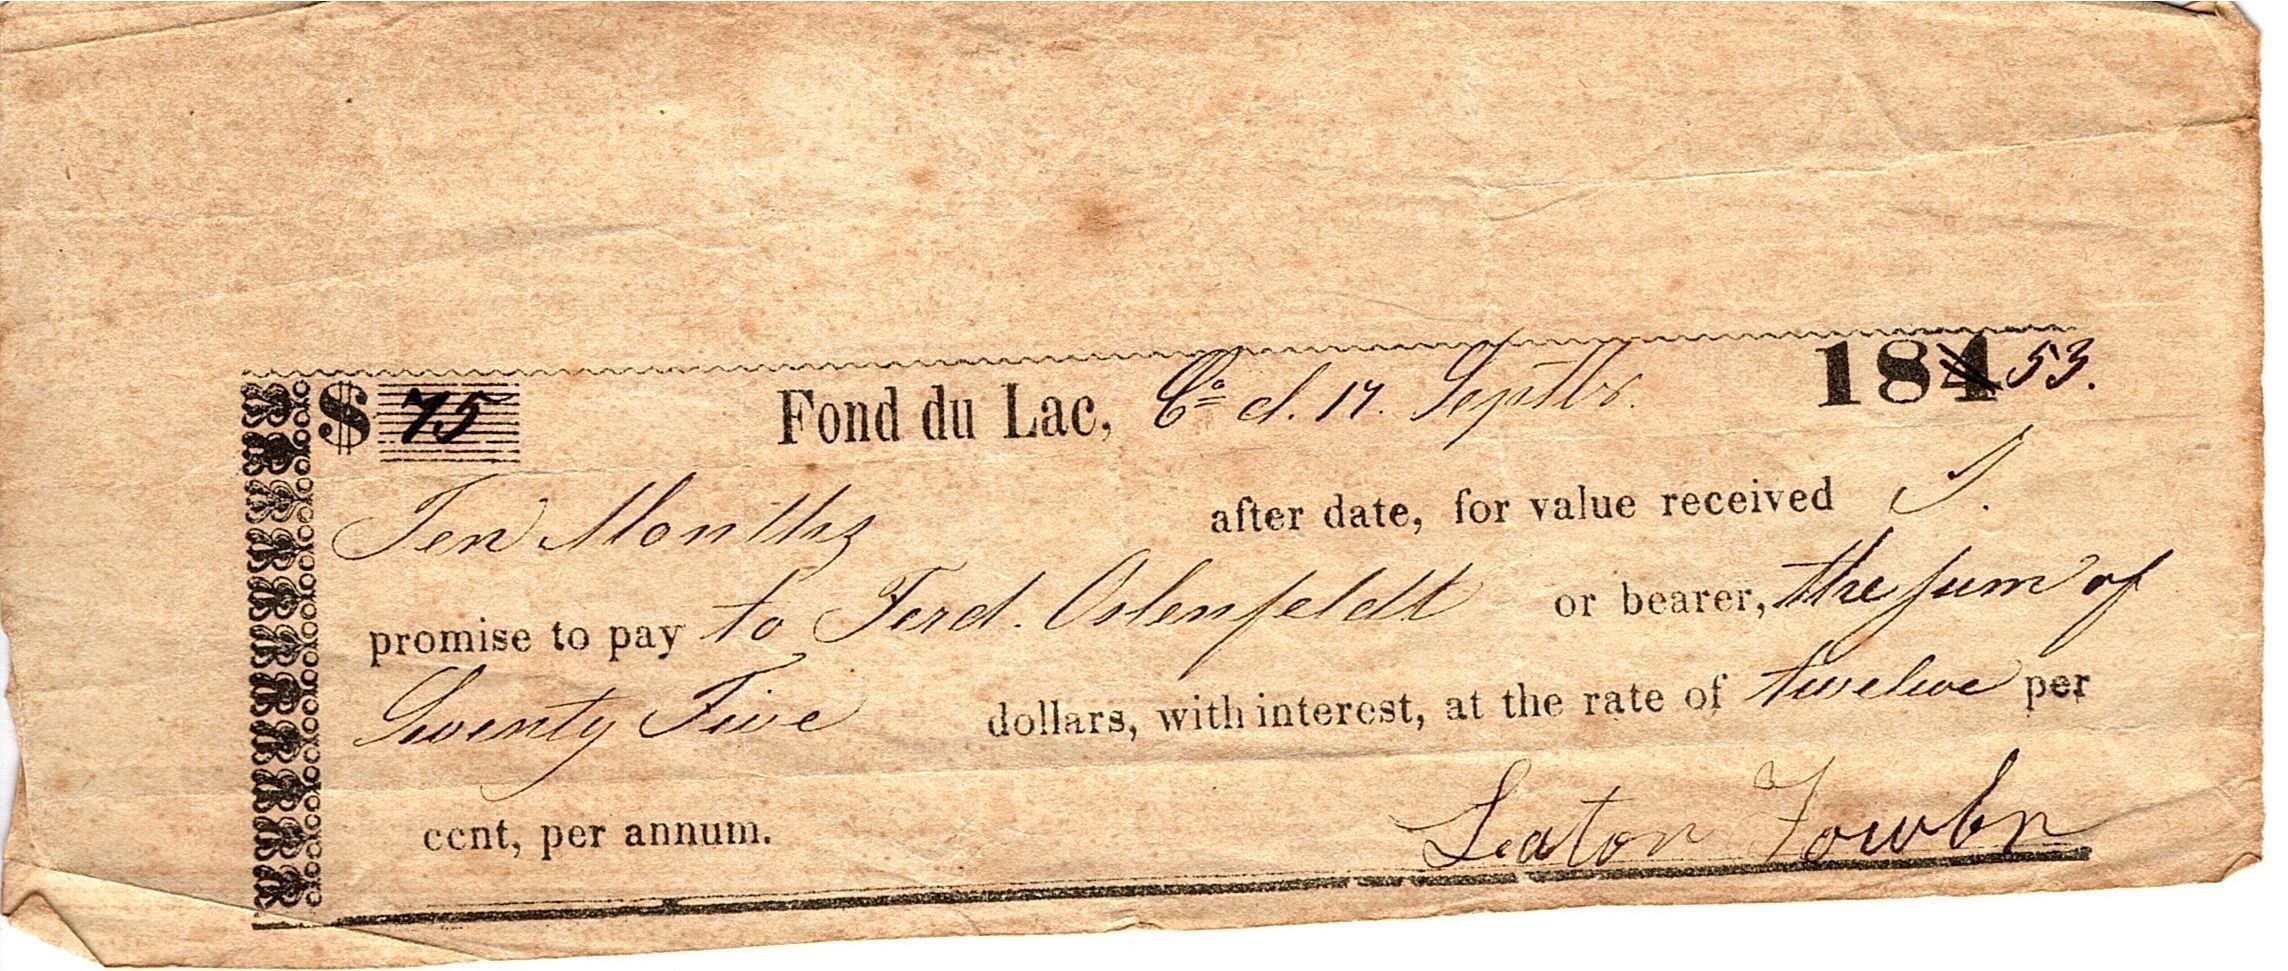 $ 75 Fond du Lac, Co d. 17. Septbr. 184 53.
Ten Months after date, for value received I.
promise to pay to Ferd. Ostenfeldt or bearer, the sum of
Seventy Five dollars, with interest, at the rate of twelve per
cent, per annum.
Seaton